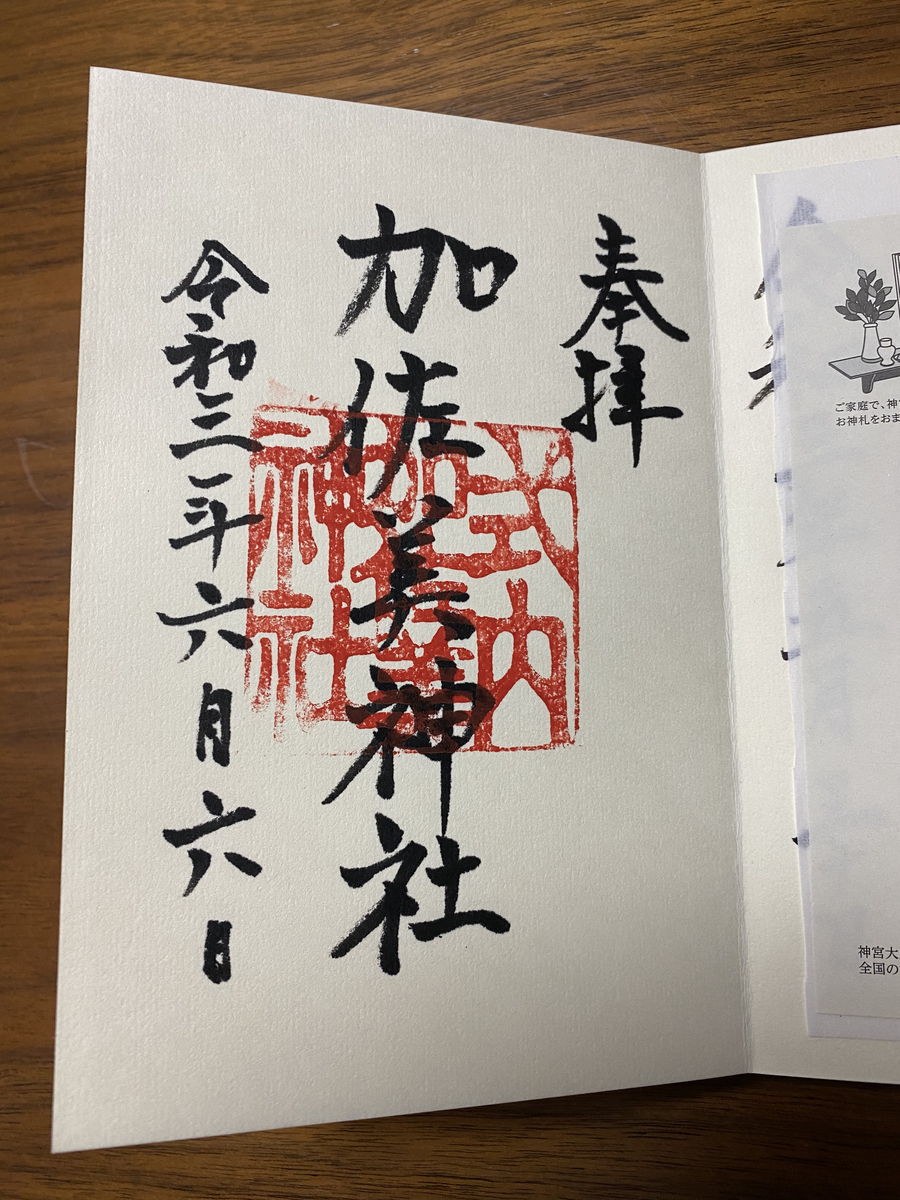 奉拝
加佐美神社
令和三年六月六日
式内
加佐美
神社
ご家庭で、神
お神札をおま
神宮大
全国の